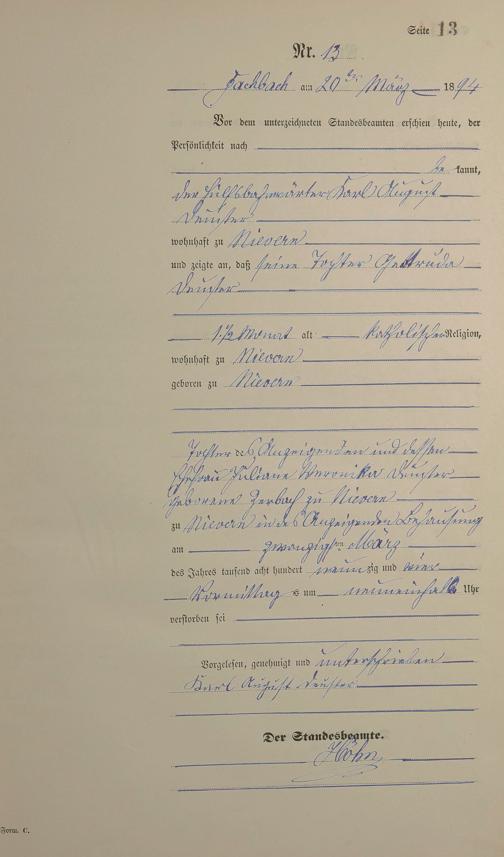 Seite 13
Nr. 13.
Fachbach am 20ten März 1894
Vor dem unterzeichneten Standesbeamten erschien heute, der
Persönlichkeit nach
be kannt,
der Hülfsbahnwärter Karl August
Deuster
wohnhaft zu Nievern
und zeigte an, daß seine Tochter Gertruda
Deuster
1 1/2 Monat alt katholischer Religion,
wohnhaft zu Nievern
geboren zu Nievern
Tochter des Anzeigenden und dessen
Ehefrau Juliane Veronika Deuster
geborene Gerbach zu Nievern
zu Nievern in des Anzeigenden Behausung
am zwanzigsten März
des Jahres tausend acht hundert neunzig und vier
Vormittags um neuneinhalb Uhr
verstorben sei
Vorgelesen, genehmigt und unterschrieben
Karl August Deuster
Der Standesbeamte.
Höhn
Form. C.